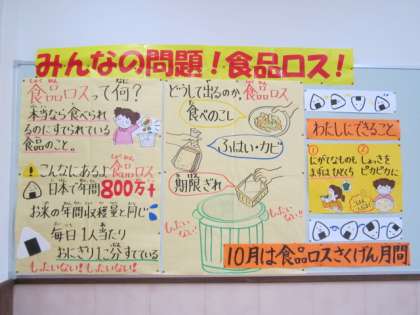 みんなの問題！食品ロス！
食品ロスって何？
本当なら食べられ
るのにすてられている
食品のこと。
！こんなにあるよ食品ロス
日本で年間800万t
お米の年間収穫量と同じ
毎日1人当たり
おにぎり1こ分すてている
したいない！したいない！
どうして出るのか、食品ロス
食べのこし
ふはい・カビ
期限ぎれ
したいない！
したいない！
わたしにできること
①
にがてなものも
まずはひとくち
②
しょっきを
ピカピカに
10月は食品ロスさくげん月間